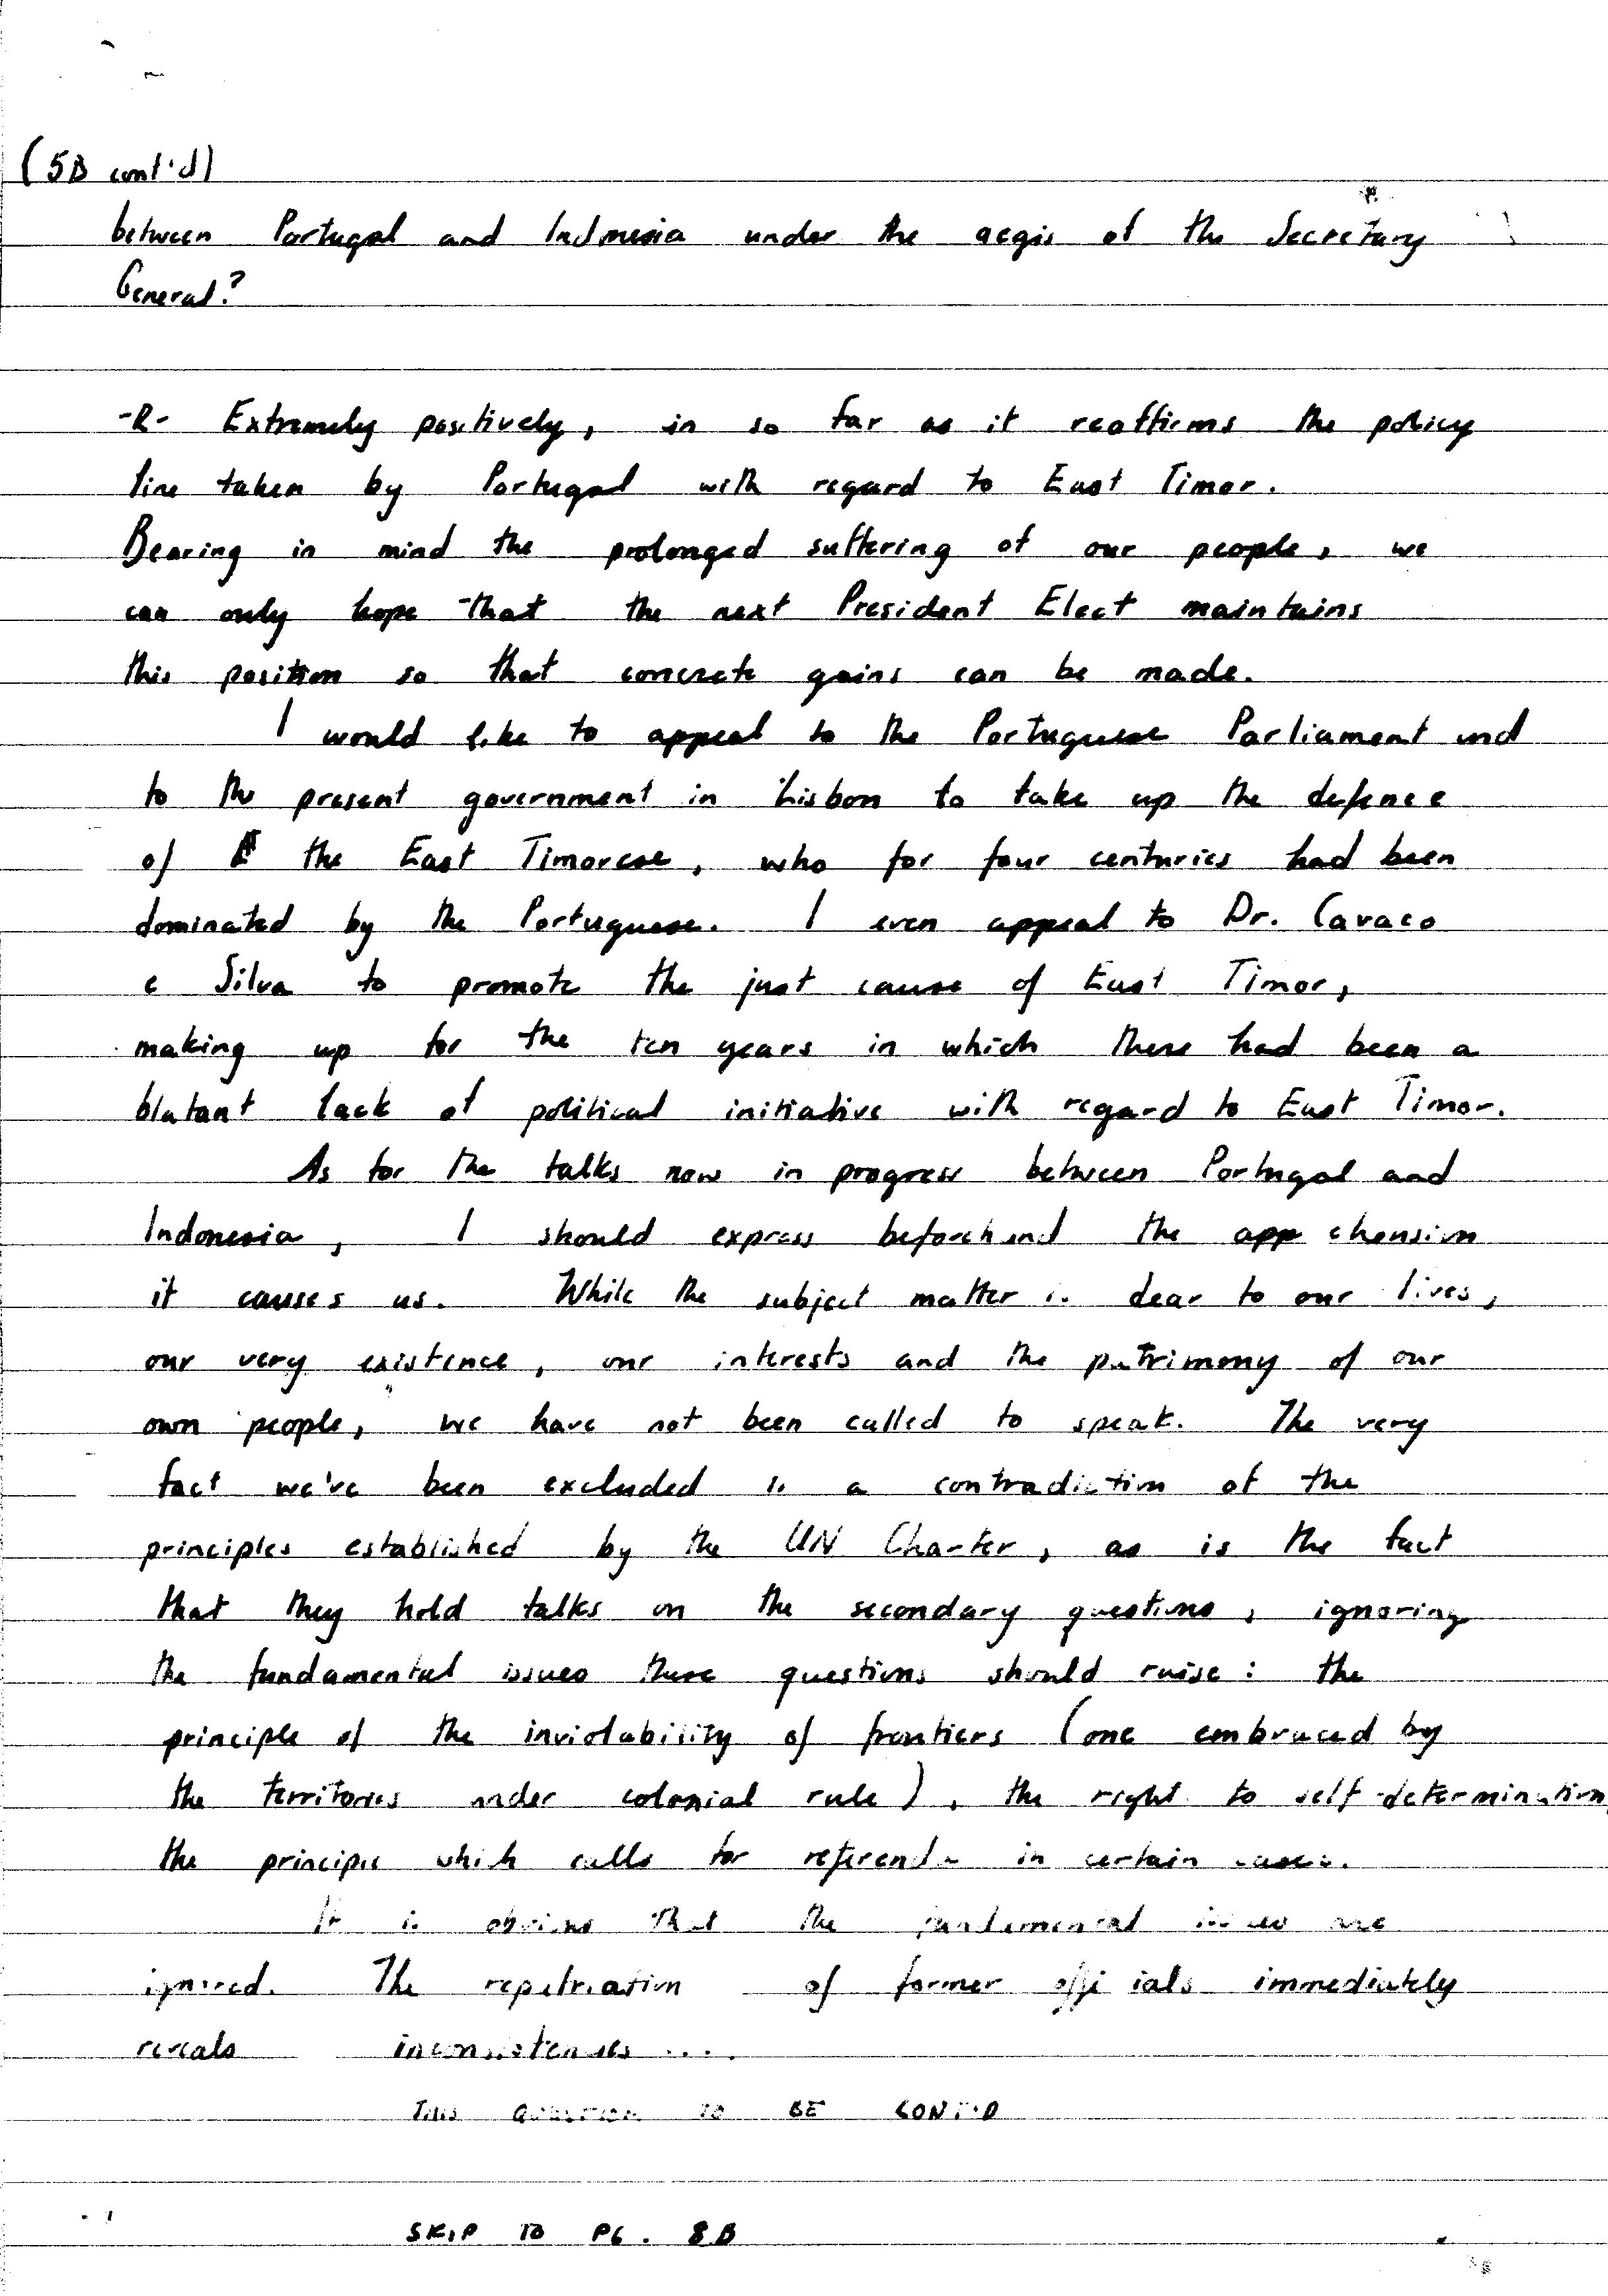 (5B cont'd)
between Portugal and Indonesia under the aegis of the Secretary
General?
-R- Extremely positively, in so far as it reaffirms the policy
line taken by Portugal with regard to East Timor.
Bearing in mind the prolonged suffering of our people, we
can only hope that the next President Elect maintains
this position so that concrete gains can be made.
I would like to appeal to the Portuguese Parliament and
to the present government in Lisbon to take up the defence
of the East Timorese, who for four centuries had been
dominated by the Portuguese. I even appeal to Dr. Cavaco
e Silva to promote the just cause of East Timor,
making up for the ten years in which there had been a
blatant lack of political initiative with regard to East Timor.
As for the talks now in progress between Portugal and
Indonesia, I should express beforehand the app ehension
it causes us. While the subject matter is dear to our lives,
our very existence, our interests and the patrimony of our
own people, we have not been called to speak. The very
fact we've been excluded is a contradiction of the
principles established by the UN Charter, as is the fact
that they hold talks on the secondary questions, ignoring
the fundamental issues these questions should raise: the
principle of the inviolability of frontiers (one embraced by
the territories under colonial rule), the right to self-determination,
the principle which calls for referenda in certain cases.
It is obvious that the fundamental issues are
ignored. The repatriation of former offi ials immediately
reveals inconsistencies ....
THIS QUESTION TO BE CONT'D
SKIP TO PG. 8B